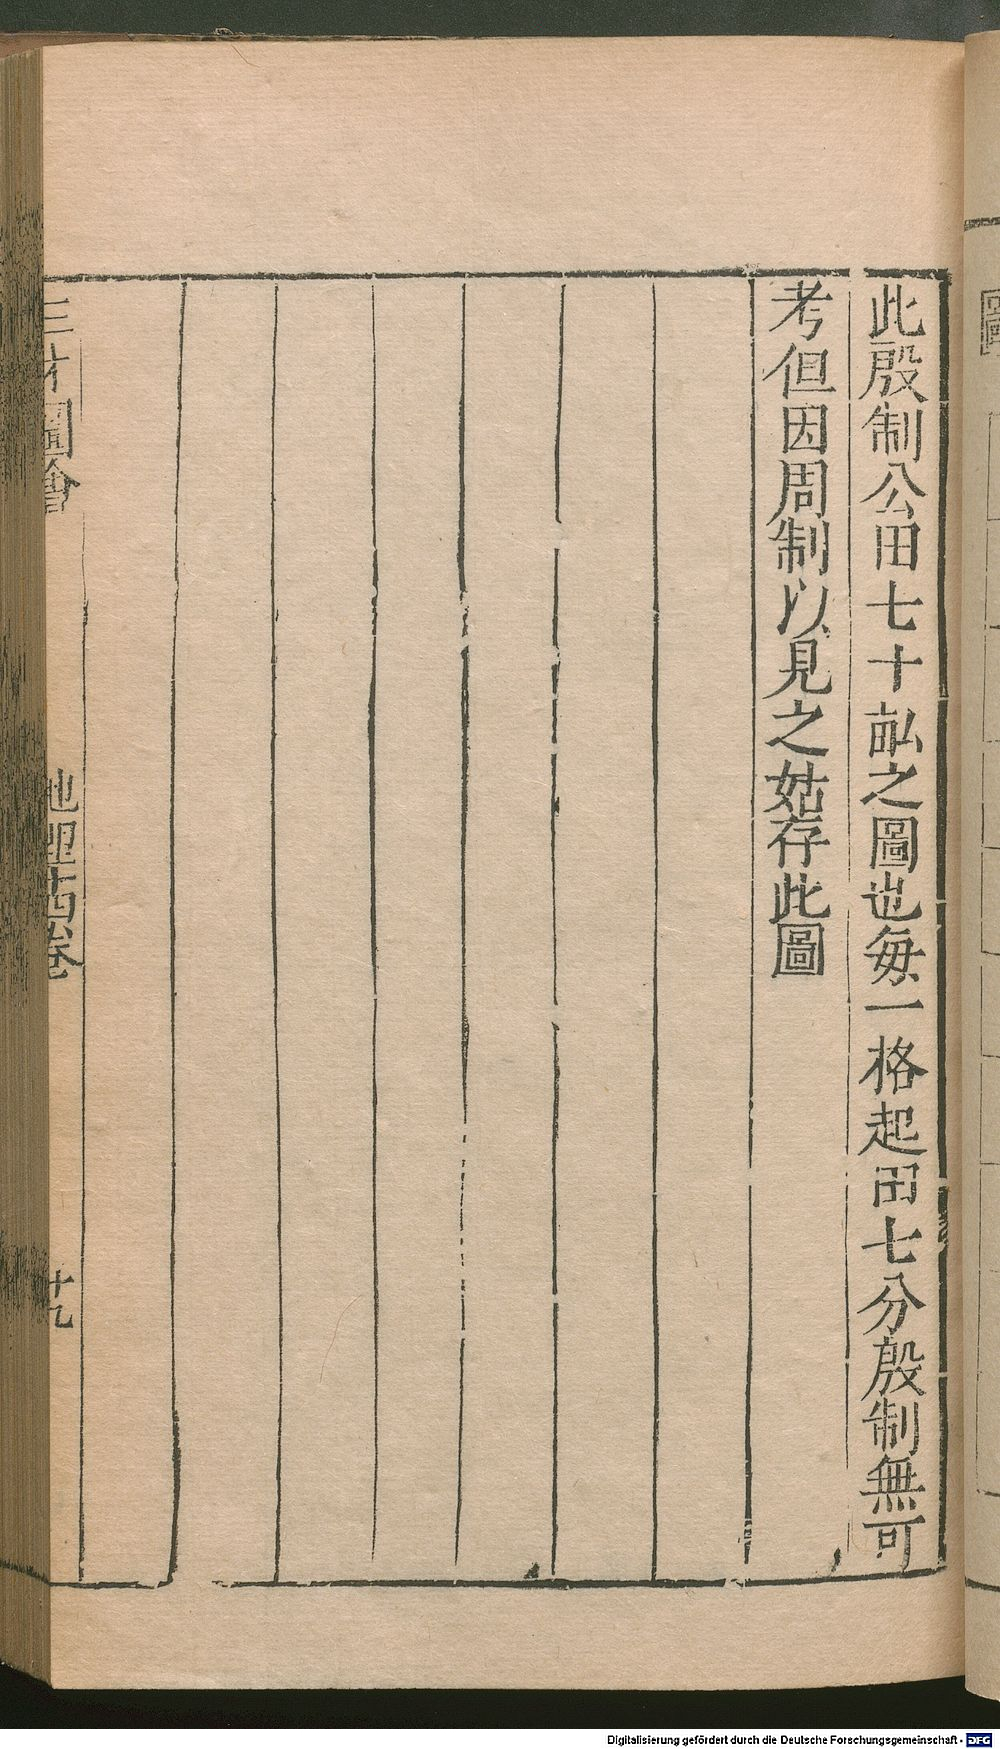 此殷制公田七十畝之圖也每一格起田七分殷制無可
考但因周制以見之姑存此圖
三才圖會
地理十四卷
十九
圖
Digitalisierung gefördert durch die Deutsche Forschungsgemeinschaft - DFG